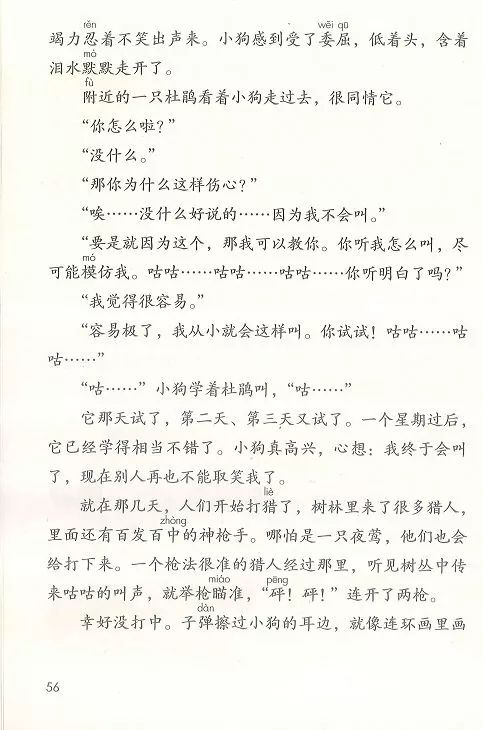 rěn wěi qū
竭力忍着不笑出声来。小狗感到受了委屈，低着头，含着
mò
泪水默默走开了。
fù
附近的一只杜鹃看着小狗走过去，很同情它。
“你怎么啦？”
“没什么。”
“那你为什么这样伤心？”
“唉……没什么好说的……因为我不会叫。”
“要是就因为这个，那我可以教你。你听我怎么叫，尽
mó
可能模仿我。咕咕……咕咕……咕咕……你听明白了吗？”
“我觉得很容易。”
“容易极了，我从小就会这样叫。你试试！咕咕……咕
咕……”
“咕……”小狗学着杜鹃叫，“咕……”
它那天试了，第二天、第三天又试了。一个星期过后，
它已经学得相当不错了。小狗真高兴，心想：我终于会叫
了，现在别人再也不能取笑我了。
liè
就在那几天，人们开始打猎了，树林里来了很多猎人，
zhòng
里面还有百发百中的神枪手。哪怕是一只夜莺，他们也会
给打下来。一个枪法很准的猎人经过那里，听见树丛中传
miáo pēng
来咕咕的叫声，就举枪瞄准，“砰！砰！”连开了两枪。
dàn
幸好没打中。子弹擦过小狗的耳边，就像连环画里画
56